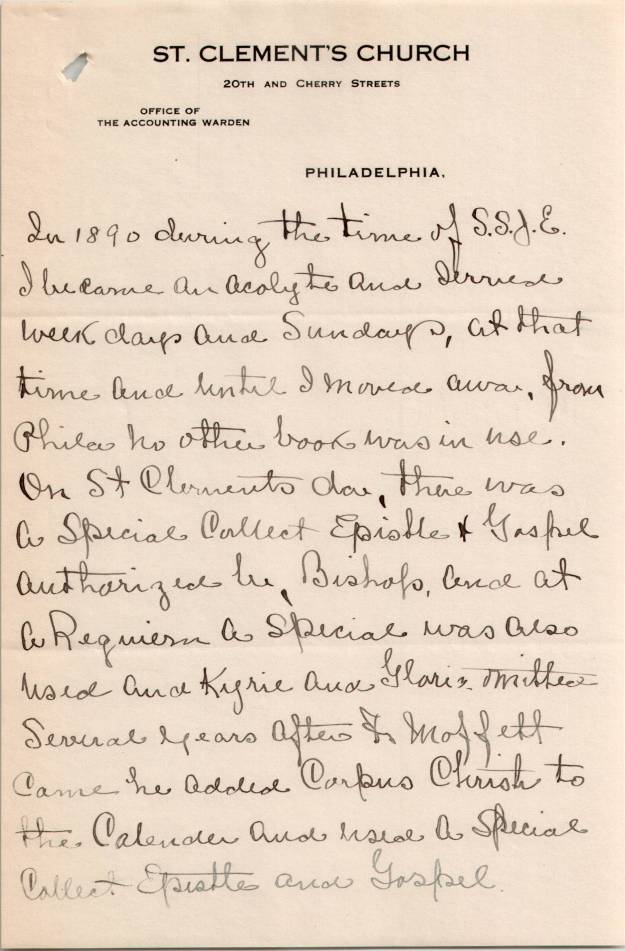 ST. CLEMENT'S CHURCH
20TH AND CHERRY STREETS
OFFICE OF
THE ACCOUNTING WARDEN
PHILADELPHIA,
In 1890 during the time of S.S.J.E.
I became an acolyte and served
week days and Sundays, at that
time and until I moved away from
Phila no other book was in use.
On St Clements day, there was
a Special Collect Epistle & Gospel
authorized by Bishop, and at
a Requiem a Special was also
used and Kyrie and Gloria omitted
Several years after Fr Moffett
came he added Corpus Christi to
the Calender and used a Special
Collect Epistle and Gospel.